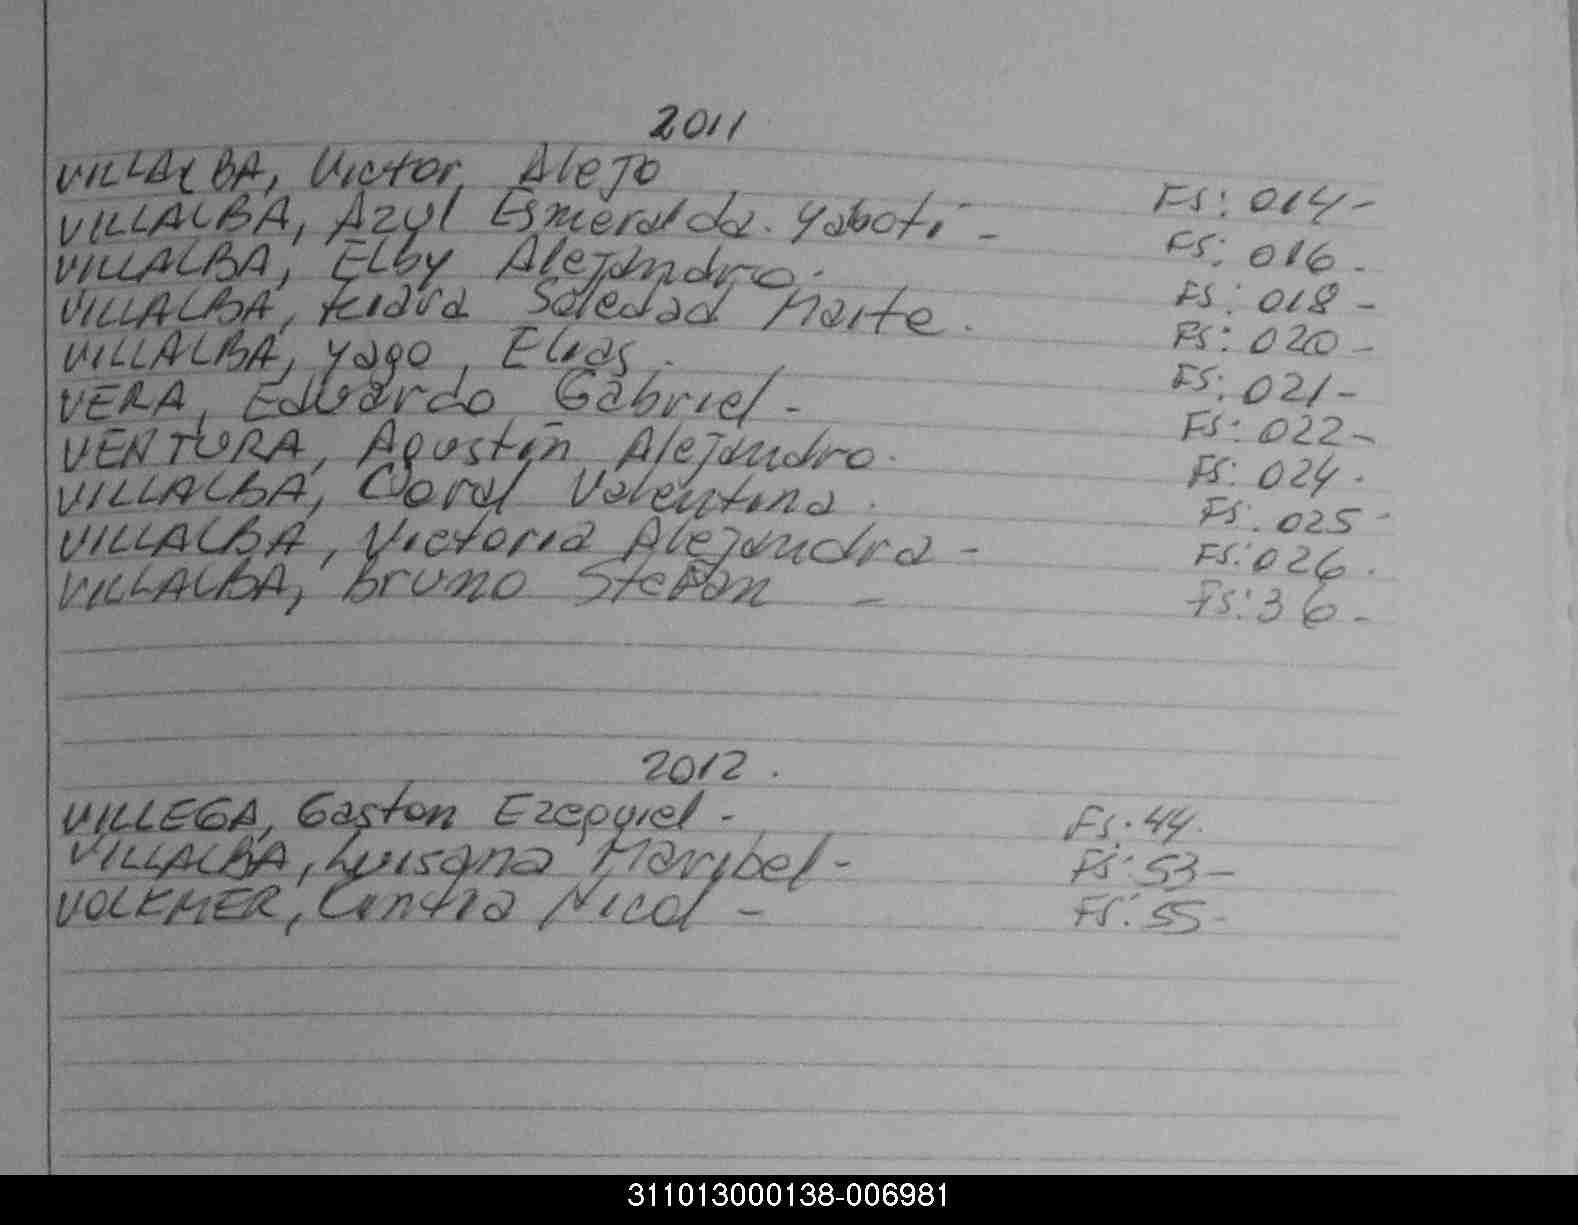 2011
VILLALBA, Victor, Alejo FS: 014-
VILLALBA, Azul Esmeralda. Yaboti - FS: 016.
VILLALBA, Elby Alejandro. FS: 018-
VILLALBA, Kiara Soledad Maite. FS: 020-
VILLALBA, Yago, Elias. FS: 021-
VERA, Eduardo Gabriel- FS: 022-
VENTURA, Agustín Alejandro. FS: 024.
VILLALBA, Coral Valentina. FS: 025-
VILLALBA, Victoria Alejandra- FS: 026.
VILLALBA, Bruno Stefan - FS: 36-
2012.
VILLEGA, Gaston Ezequiel-. FS. 44.
VILLALBA, Luisana Maribel- FS: 53-
VOLKMER, Cintia Nicol- FS: 55-
311013000138-006981